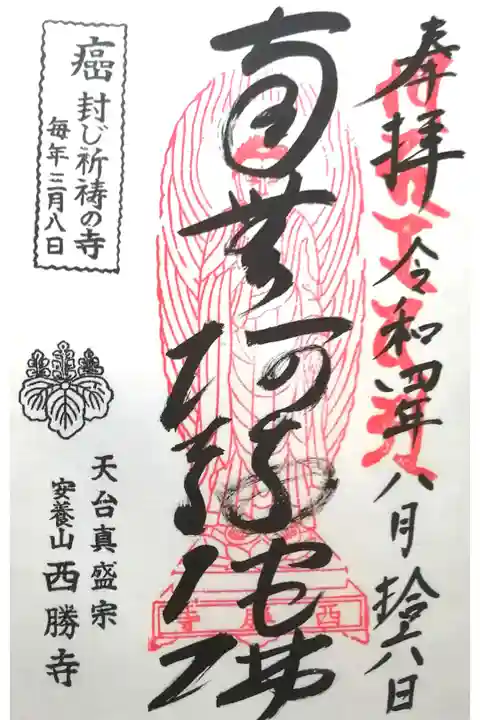 奉拝 令和四年八月拾八日
南無阿弥陀佛
癌封じ祈祷の寺
毎年三月八日
天台真盛宗
安養山 西勝寺
西勝寺